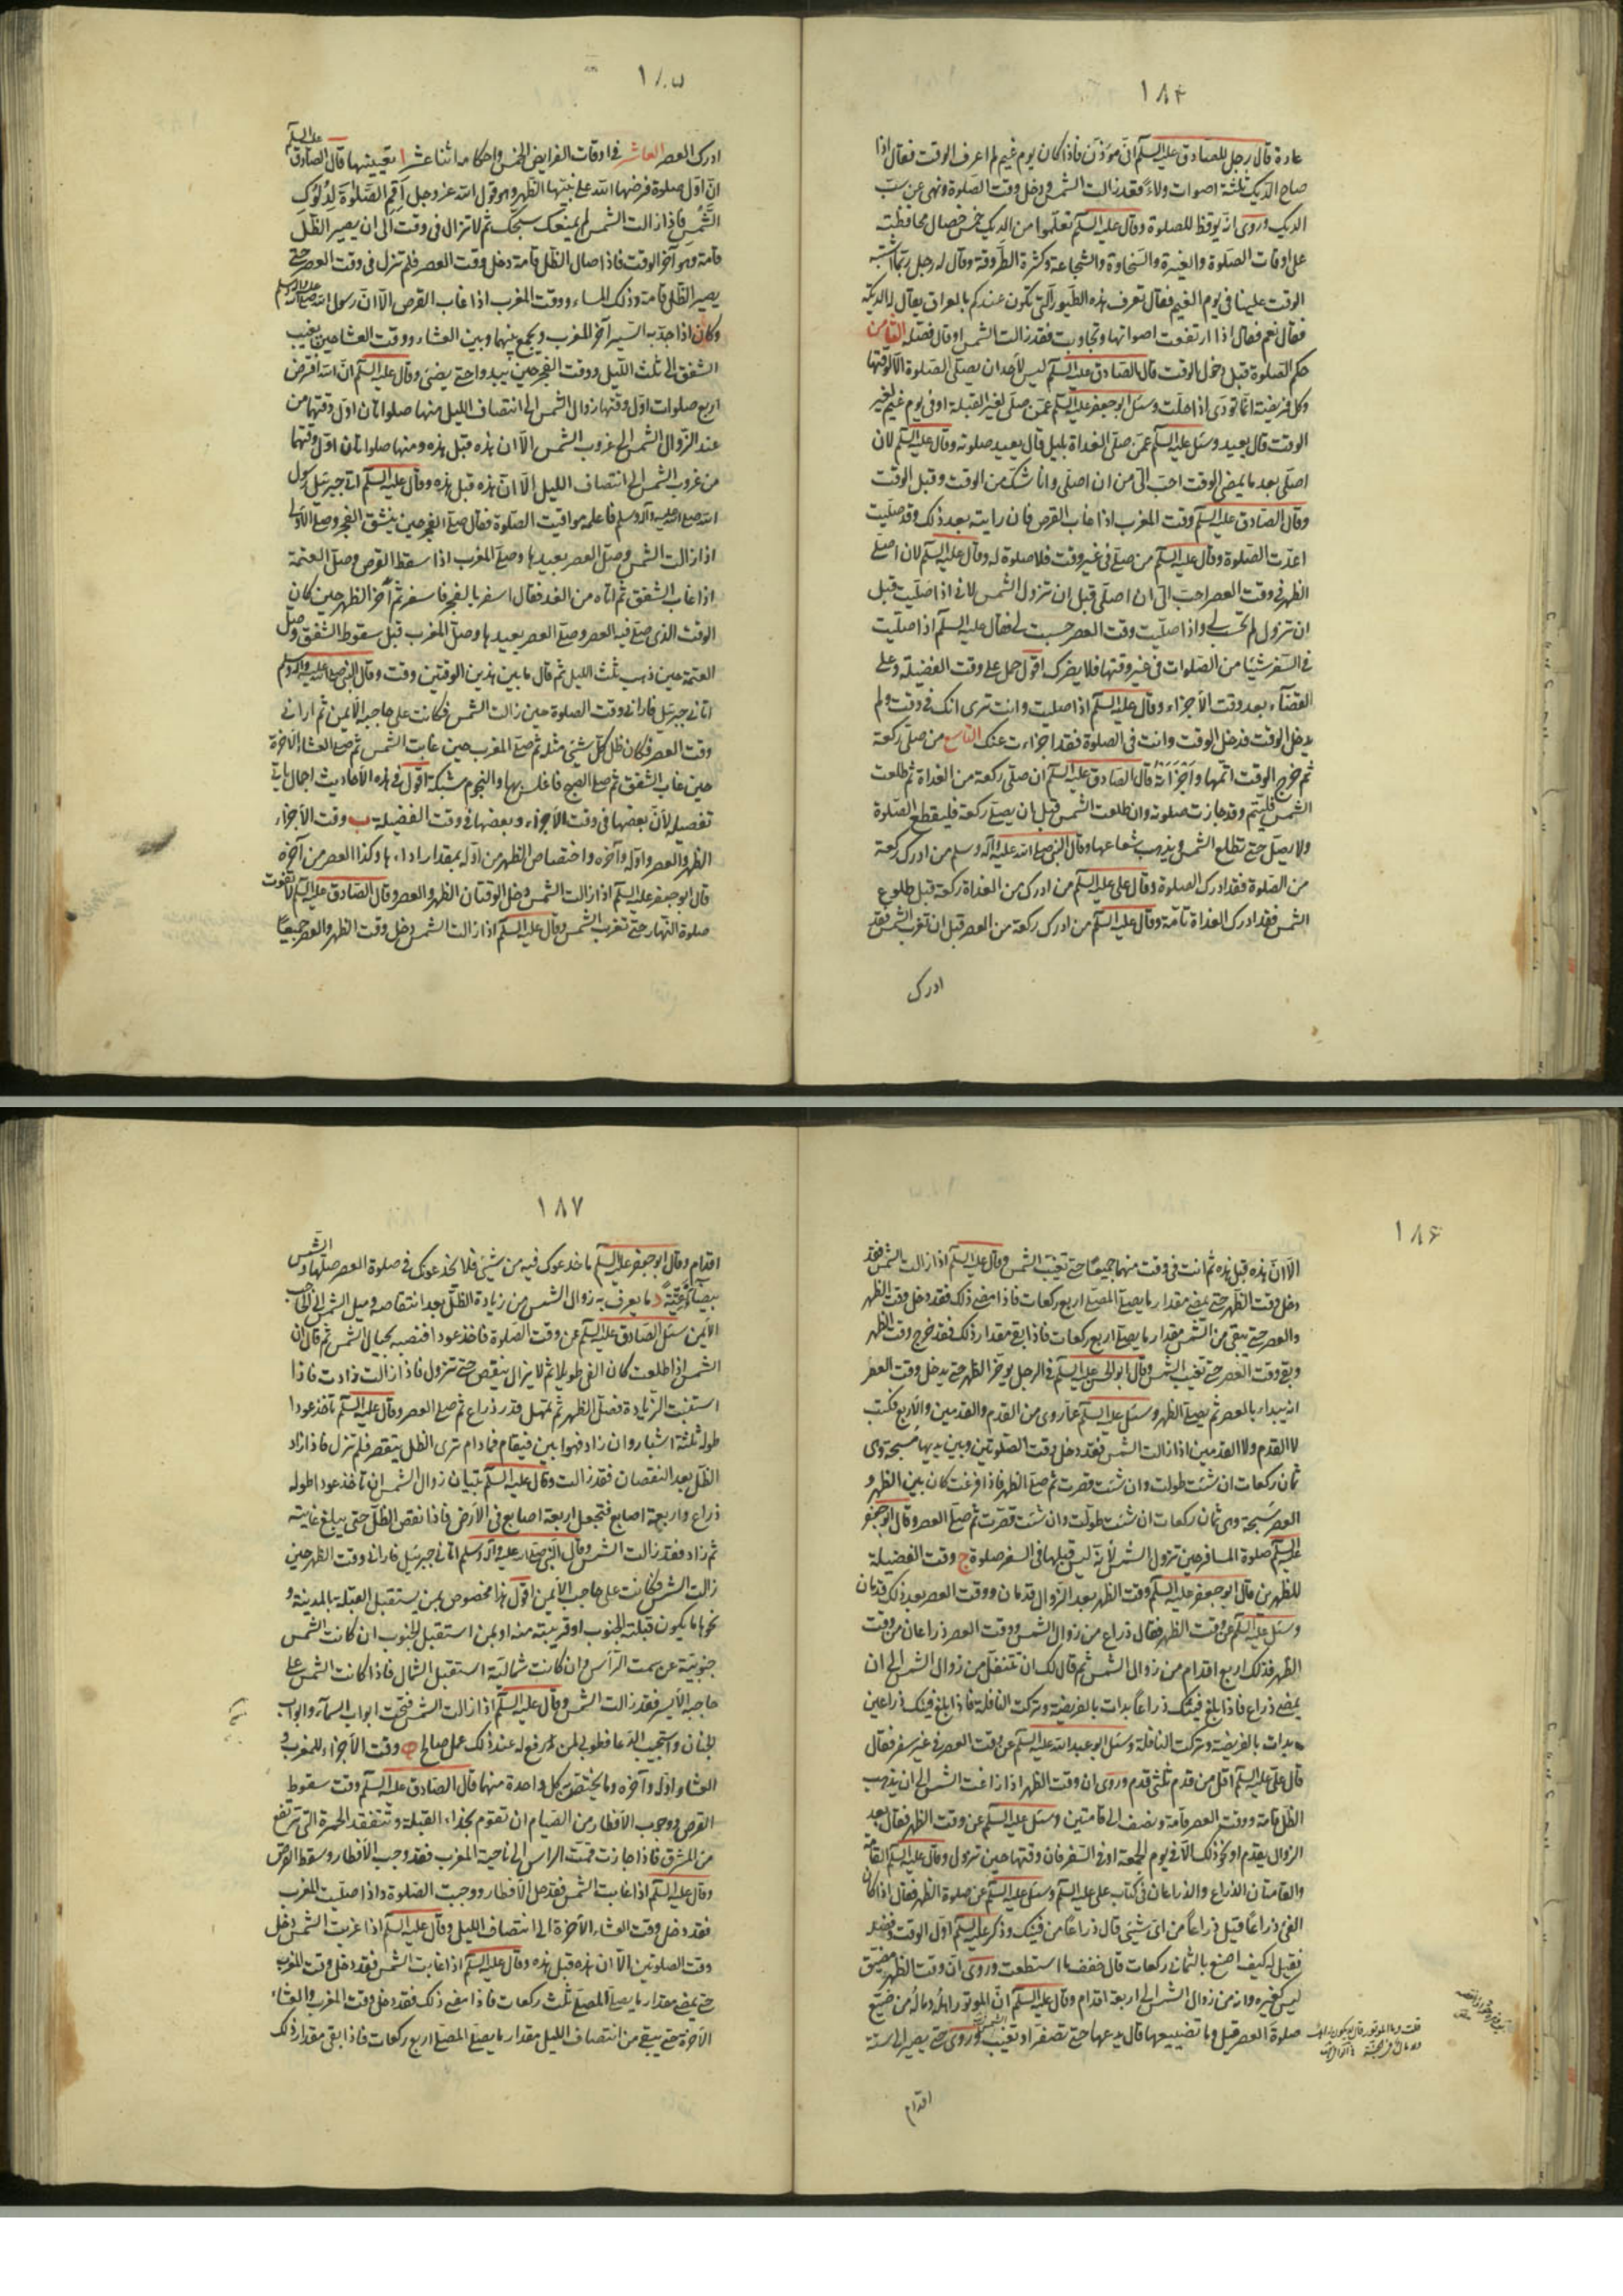 ١٨٤
عادة قال رجل للصادق عليه السلم انى مؤذن فاذا كان يوم غيم لم اعرف الوقت فقال اذا
صاح الديك ثلثة اصوات ولاءً فقد زالت الشمس ودخل وقت الصلوة ونهى عن سب
الديك وروى انه يوقظ للصلوة وقال عليه السلم تعلموا من الديك خمس خصال محافظته
على اوقات الصلوة والغيرة والسخاوة والشجاعة وكثرة الطروقة وقال له رجل ربما اشتبه
الوقت علينا فى يوم الغيم فقال تعرف هذه الطيور التى تكون عندكم بالعراق يقال لها الديكة
فقال نعم فقال اذا ارتفعت اصواتها وتجاوبت فقد زالت الشمس او قال فصله الثامن
حكم الصلوة قبل دخول الوقت قال الصادق عليه السلم ليس لأحد ان يصلى الصلوة الا لوقتها
وكل فريضة انما تؤدى اذا حلت وسئل ابو جعفر عليه السلم عمن صلى لغير القبلة او فى يوم غيم لغير
الوقت قال يعيد وسئل عليه السلم عمن صلى الغداة بليل قال يعيد صلوته وقال عليه السلم لان
اصلى بعد ما يمضى الوقت احب الى من ان اصلى وانا فى شك من الوقت وقبل الوقت
وقال الصادق عليه السلم وقت المغرب اذا غاب القرص فان رايته بعد ذلك وقد صليت
اعدت الصلوة وقال عليه السلم من صلى فى غير وقت فلا صلوة له وقال عليه السلم لان اصلى
الظهر فى وقت العصر احب الى ان اصلى قبل ان تزول الشمس لانى اذا صليت قبل
ان تزول لم تحسب لى واذا صليت وقت العصر حسبت لى فقال عليه السلم اذا صليت
فى السفر شيئا من الصلوات فى غير وقتها فلا يضرك اقول حمل على وقت الفضيلة وعلى
القضآء بعد وقت الأجزاء وقال عليه السلم اذا صليت وانت ترى انك فى وقت ولم
يدخل الوقت فدخل الوقت وانت فى الصلوة فقد اجزاءت عنك التاسع من صلى ركعة
ثم خرج الوقت اتمها وأجزأته قال الصادق عليه السلم ان صلى ركعة من الغداة ثم طلعت
الشمس فليتم وقد جازت صلوته وان طلعت الشمس قبل ان يصلى ركعة فليقطع الصلوة
ولا يصل حتى تطلع الشمس ويذهب شعاعها وقال النبى صلى الله عليه وآله وسلم من ادرك ركعة
من الصلوة فقد ادرك الصلوة وقال على عليه السلم من ادرك من الغداة ركعة قبل طلوع
الشمس فقد ادرك الغداة تامة وقال عليه السلم من ادرك ركعة من العصر قبل ان تغرب الشمس فقد
ادرك
١٨٥
ادرك العصر العاشر فى اوقات الفرايض الخمس واحكامها اثنا عشر ا تعيينها قال الصادق عليه السلم
ان اول صلوة فرضها الله على نبيها الظهر وهو قول الله عز وجل أَقِمِ الصَّلوٰةَ لِدُلُوكِ
الشَّمْسِ فاذا زالت الشمس لم يمنعك سبحتك ثم لا تزال فى وقت الى ان يصير الظل
قامة وهو آخر الوقت فاذا صار الظل قامة دخل وقت العصر فلم تزل فى وقت العصر حتى
يصير الظل قامتين وذلك المساء ووقت المغرب اذا غاب القرص الا ان رسول الله صلى الله عليه وآله وسلم
وكان اذا جد به السير آخر المغرب ويجمع بينهما وبين العشاء ووقت العشا حين يغيب
الشفق الى ثلث الليل ووقت الفجر حين يبدوا حتى يضىء وقال عليه السلم ان الله افترض
اربع صلوات اول وقتها زوال الشمس الى انتصاف الليل منها صلواتان اول وقتهما من
عند الزوال الشمس الى غروب الشمس الا ان هذه قبل هذه ومنها صلواتان اول وقتهما
من غروب الشمس الى انتصاف الليل الا ان هذه قبل هذه وقال عليه السلم اتى جبرئيل رسول
الله صلى الله عليه وآله وسلم فاعلمه مواقيت الصلوة فقال صل الفجر حين ينشق الفجر وصل الاولى
اذا زالت الشمس وصل العصر بعيدها وصل المغرب اذا سقط القرص وصل العتمة
اذا غاب الشفق ثم اتاه من الغد فقال اسفر بالفجر فاسفر ثم اخر الظهر حين كان
الوقت الذى صلى فيه العصر وصلى العصر بعيدها وصلى المغرب قبل سقوط الشفق وصلى
العتمة حين ذهب ثلث الليل ثم قال ما بين هذين الوقتين وقت وقال النبى صلى الله عليه وآله وسلم
اتانى جبرئيل فارانى وقت الصلوة حين زالت الشمس فكانت على حاجبه الأيمن ثم ارانى
وقت العصر فكان ظل كل شىء مثله ثم صلى المغرب حين غابت الشمس ثم صلى العشاء الاخرة
حين غاب الشفق ثم صلى الصبح فاغلس بها والنجوم مشبكة اقول فى هذه الأحاديث اجمال ياتى
تفصيله لأن بعضها فى وقت الأجزاء وبعضها فى وقت الفضيلة ب وقت الأجزاء
الظهر والعصر واوله وآخره واختصاص الظهر من اوله بمقدار اداءها وكذا العصر من آخره
قال ابو جعفر عليه السلم اذا زالت الشمس دخل الوقتان الظهر والعصر وقال الصادق عليه السلم لا تفوت
صلوة النهار حتى تغرب الشمس وقال عليه السلم اذا زالت الشمس دخل وقت الظهر والعصر جميعًا
١٨٦
الا ان هذه قبل هذه ثم انت فى وقت منهما جميعًا حتى تغيب الشمس وقال عليه السلم اذا زالت الشمس فقد
دخل وقت الظهر حتى يمضى مقدار ما يصلى المصلى اربع ركعات فاذا مضى ذلك فقد دخل وقت الظهر
والعصر حتى تبقى من الشمس مقدار ما يصلى اربع ركعات فاذا بقى مقدار ذلك فقد خرج وقت الظهر
وبقى وقت العصر حتى تغيب الشمس وقال ابو الحسن عليه السلم فى الرجل يوخر الظهر حتى يدخل وقت العصر
انه يبداء بالعصر ثم يصلى الظهر وسئل عليه السلم عما روى من القدم والقدمين والأربع فكتب
لا القدم ولا القدمين اذا زالت الشمس فقد دخل وقت الصلوتين وبين يديها سُبحة وهى
ثمان ركعات ان شئت طولت وان شئت قصرت ثم صل الظهر فاذا فرغت كان بين الظهر و
العصر سَبحة وهى ثمان ركعات ان شئت طولت وان شئت قصرت ثم صل العصر وقال ابو جعفر
عليه السلم صلوة المسافر حين تزول الشمس لأنه ليس قبلها فى السفر صلوة ج وقت الفضيلة
للظهرين قال ابو جعفر عليه السلم وقت الظهر بعد الزوال قدمان ووقت العصر بعد ذلك قدمان
وسئل عليه السلم عن وقت الظهر فقال ذراع من زوال الشمس ووقت العصر ذراعان من وقت
الظهر فذلك اربع اقدام من زوال الشمس ثم قال لك ان تتنفل من زوال الشمس الى ان
يمضى ذراع فاذا بلغ فيئك ذراعًا بدات بالفريضة وتركت النافلة فاذا بلغ فيئك ذراعين
بدات بالفريضة وتركت النافلة وسئل ابو عبد الله عليه السلم عن وقت العصر فى غير سفر فقال
قال على عليه السلم اقل من قدم ثلثى قدم وروى ان وقت الظهر اذا زاغت الشمس الى ان يذهب
الظل قامة ووقت العصر قامة ونصف الى قامتين وسئل عليه السلم عن وقت الظهر فقال بعد
الزوال بقدم او نحو ذلك الا فى يوم الجمعة او فى السفر فان وقتها حين تزول وقال عليه السلم القامة
والقامتان الذراع والذراعان فى كتاب على عليه السلم وسئل عليه السلم عن صلوة الظهر فقال اذا كان
الفئ ذراعًا قيل ذراعًا من اى شىء قال ذراعًا من فيئك وذكر عليه السلم اول الوقت وفضله
فقيل له كيف اصنع بالثمان ركعات قال خفف ما استطعت وروى ان وقت الظهر مضيق
ليس كغيره وانه من زوال الشمس الى اربعة اقدام وقال عليه السلم ان الموتور اهله وماله من ضيع
صلوة العصر قيل وما تضييعها قال يدعها حتى تصفر او تغيب الشمس وروى حتى يصير الى ستة
اقدام
١٨٧
اقدام وقال ابو جعفر عليه السلم ما خدعوك فيه من شىء فلا يخدعونك فى صلوة العصر صلها والشمس
بيضآء نقية د ما يعرف به زوال الشمس من زيادة الظل بعد انتقاصه وميل الشمس الى الحاجب
الأيمن سئل الصادق عليه السلم عن وقت الصلوة فاخذ عودا فنصبه بحيال الشمس ثم قال ان
الشمس اذا طلعت كان الفئ طويلا ثم لا يزال ينقص حتى تزول فاذا زالت زادت فاذا
استبنت الزيادة فصل الظهر ثم تمهل قدر ذراع ثم صل العصر وقال عليه السلم تاخذ عودا
طوله ثلثة اشبار وان زاد فهو ابين فيقام فما دام ترى الظل ينقص فلم تزل فاذا زاد
الظل بعد النقصان فقد زالت وقال عليه السلم تبيان زوال الشمس ان تاخذ عودا طوله
ذراع واربعة اصابع فتجعل اربعة اصابع فى الأرض فاذا نقص الظل حتى يبلغ غايته
ثم زاد فقد زالت الشمس وقال النبى صلى الله عليه وآله وسلم اتانى جبرئيل فارانى وقت الظهر حين
زالت الشمس فكانت على حاجبه الأيمن اقول هذا مخصوص بمن يستقبل القبلة بالمدينة و
نحوها ما يكون قبلته الجنوب او قريبة منه او بمن استقبل الجنوب ان كانت الشمس
جنوبية عن سمت الرأس وان كانت شمالية استقبل الشمال فاذا كانت الشمس على
حاجبه الأيسر فقد زالت الشمس وقال عليه السلم اذا زالت الشمس فتحت ابواب السمآء وابواب
الجنان واستجيب الدعا فطوبى لمن رفع له عند ذلك عمل صالح ه وقت الأجزاء للمغرب و
العشا واوله وآخره وما يختص بكل واحدة منهما قال الصادق عليه السلم وقت سقوط
القرص ووجوب الأفطار من الصيام ان تقوم بحذاء القبلة وتتفقد الحمرة التى ترتفع
من المشرق فاذا جازت قمت الراس الى ناحية المغرب فقد وجب الأفطار وسقط القرص
وقال عليه السلم اذا غابت الشمس فقد حل الأفطار ووجبت الصلوة واذا صليت المغرب
فقد دخل وقت العشاء الاخرة الى انتصاف الليل وقال عليه السلم اذا غربت الشمس دخل
وقت الصلوتين الا ان هذه قبل هذه وقال عليه السلم اذا غابت الشمس فقد دخل وقت المغرب
حتى يمضى مقدار ما يصلى المصلى ثلث ركعات فاذا مضى ذلك فقد دخل وقت المغرب والعشاء
الآخرة حتى يبقى من انتصاف الليل مقدار ما يصلى المصلى اربع ركعات فاذا بقى مقدار ذلك